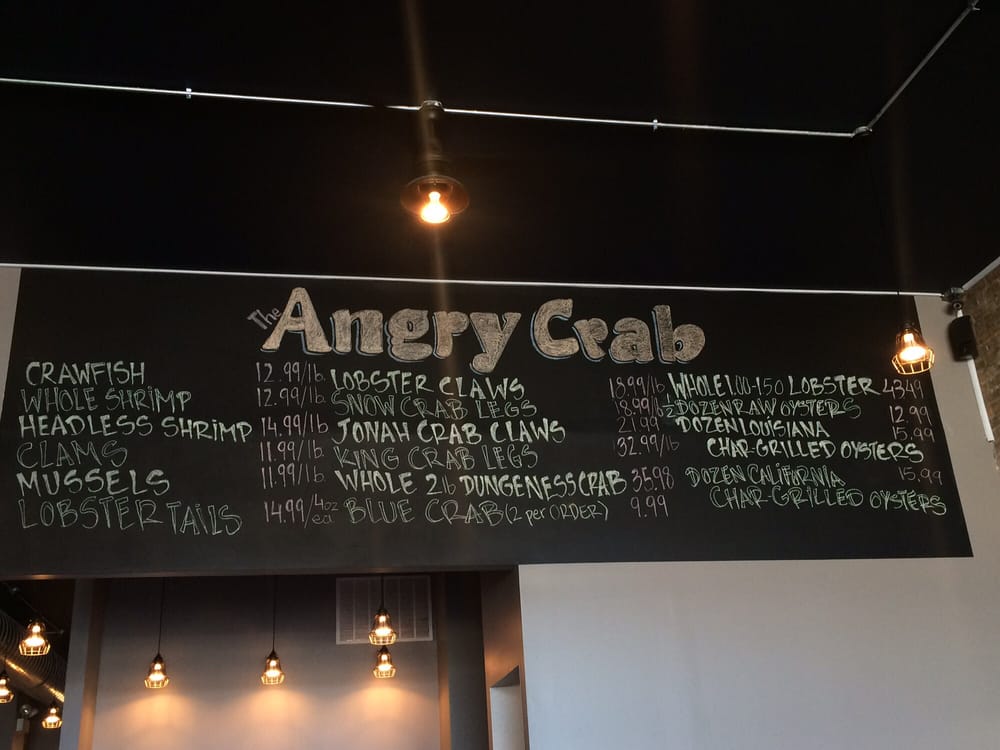 The Angry Crab
CRAWFISH 12.99/lb.
WHOLE SHRIMP 12.99/lb.
HEADLESS SHRIMP 14.99/lb
CLAMS 11.99/lb.
MUSSELS 11.99/lb.
LOBSTER TAILS 14.99/4oz ea
LOBSTER CLAWS 18.99/lb
SNOW CRAB LEGS 18.99/lb
JONAH CRAB CLAWS 21.99
KING CRAB LEGS 32.99/lb
WHOLE 2lb DUNGENESS CRAB 35.98
BLUE CRAB (2 per ORDER) 9.99
WHOLE 1.00-1.50 LOBSTER 43.49
1/2 DOZEN RAW OYSTERS 12.99
DOZEN LOUISIANA 15.99
CHAR-GRILLED OYSTERS
DOZEN CALIFORNIA 15.99
CHAR-GRILLED OYSTERS